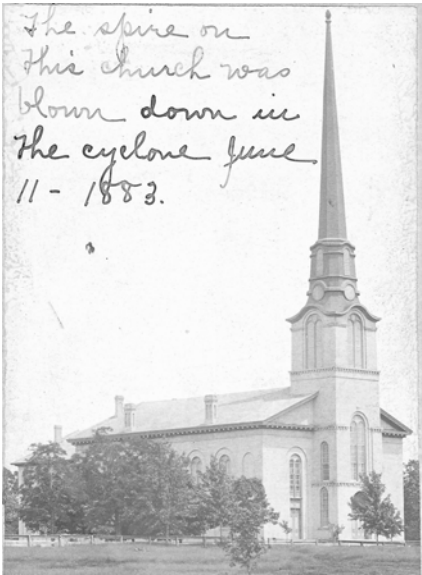 The spire on
this church was
blown down in
the cyclone June
11 - 1883.